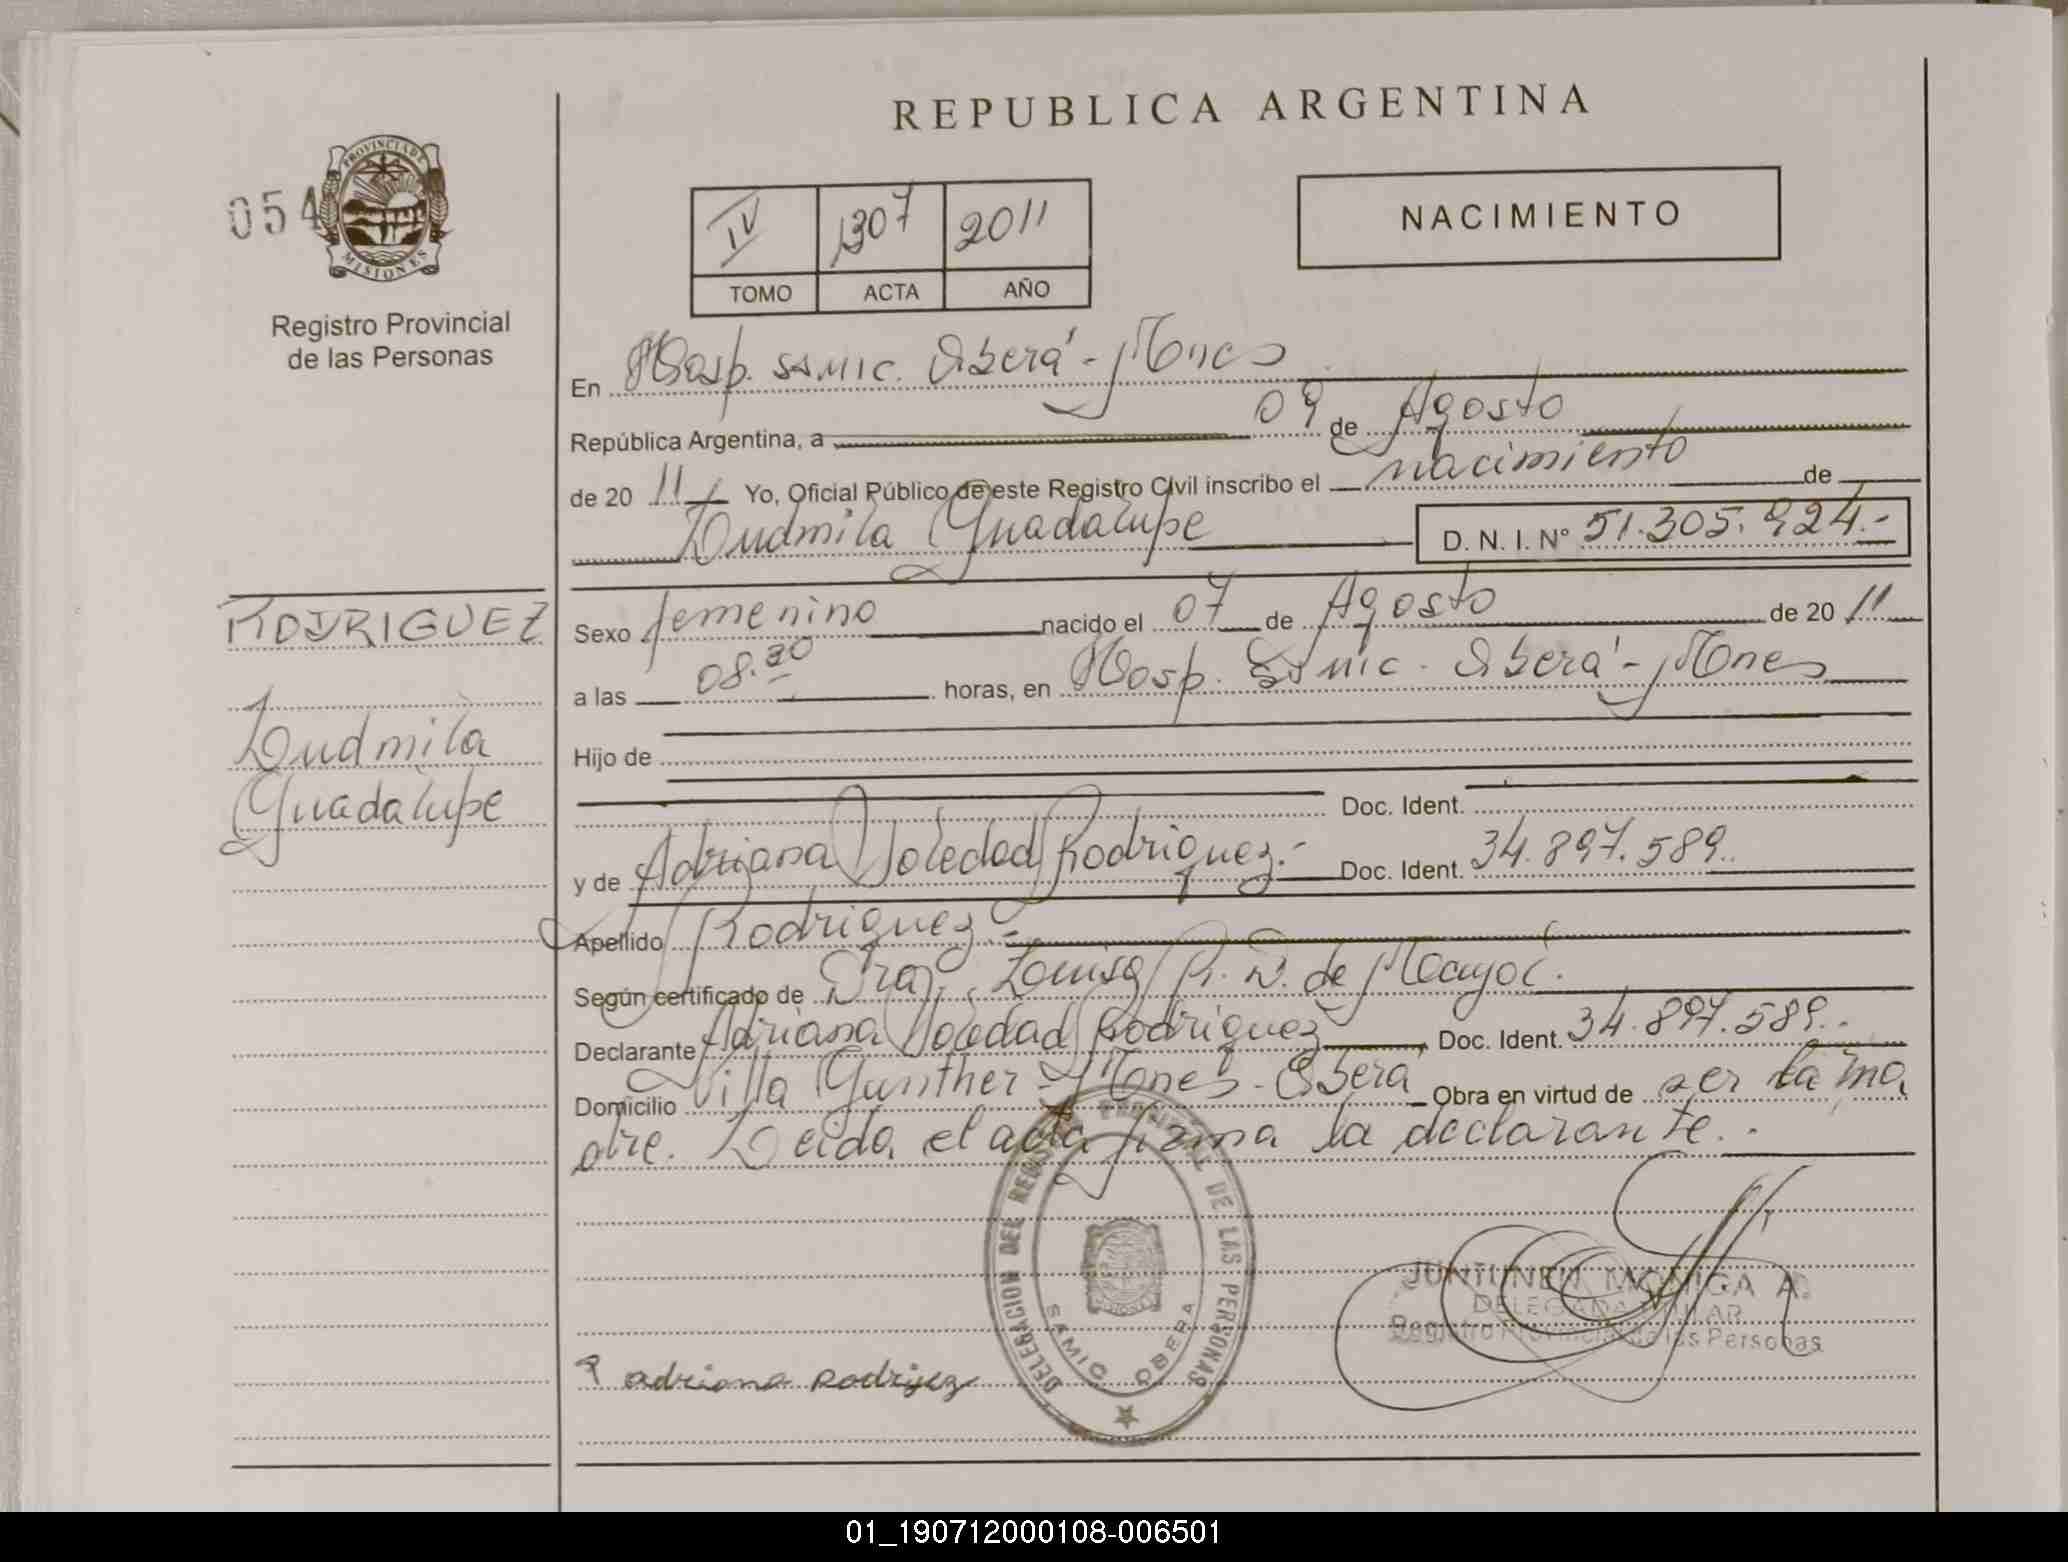 REPUBLICA ARGENTINA
054
PROVINCIA DE
MISIONES
Registro Provincial
de las Personas
IV 1307 2011
TOMO ACTA AÑO
NACIMIENTO
En Hosp. SAMIC. Oberá - Mnes
República Argentina, a 09 de Agosto
de 20 11 Yo, Oficial Público de este Registro Civil inscribo el nacimiento de
Ludmila Guadalupe D. N. I. N° 51.305.924.-
RODRIGUEZ
Ludmila
Guadalupe
Sexo femenino nacido el 07 de Agosto de 20 11
a las 08. horas, en Hosp. Samic. Oberá - Mnes
Hijo de
Doc. Ident.
y de Adriana Soledad Rodriguez.- Doc. Ident. 34.897.589.
Apellido Rodriguez.-
Según certificado de Dra. Louisa R. D. de
Declarante Adriana Soledad Rodriguez Doc. Ident. 34.897.589..
Domicilio Villa Gunther - Mnes - Oberá Obra en virtud de ser la ma
dre. Leida el acta firma la declarante..
DELEGACION DEL REGISTRO PROVINCIAL DE LAS PERSONAS
SAMIC OBERA
JUNTUNEN MONICA A.
DELEGADA TITULAR
Registro Provincial de las Personas
adriana Rodrijez
01_190712000108-006501